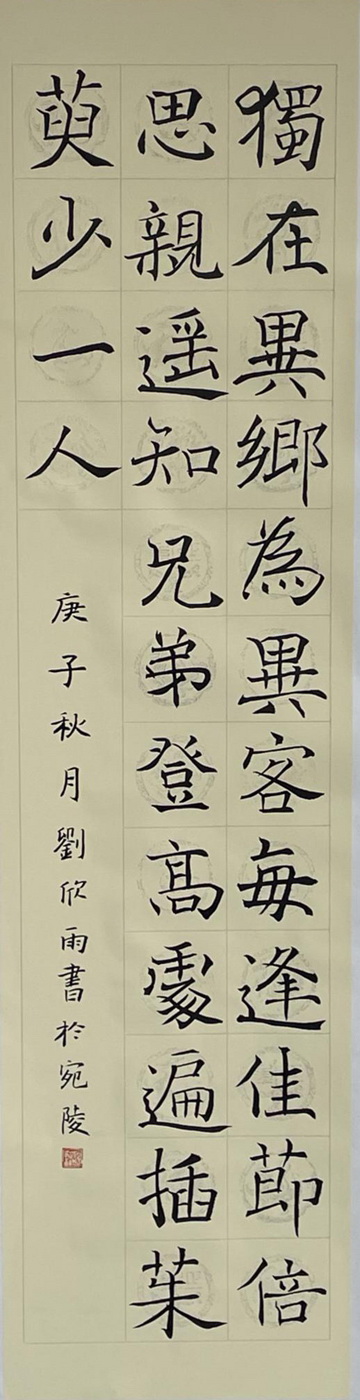 獨在異鄉為異客每逢佳節倍
思親遥知兄弟登高處遍插茱
萸少一人
庚子秋月劉欣雨書於宛陵